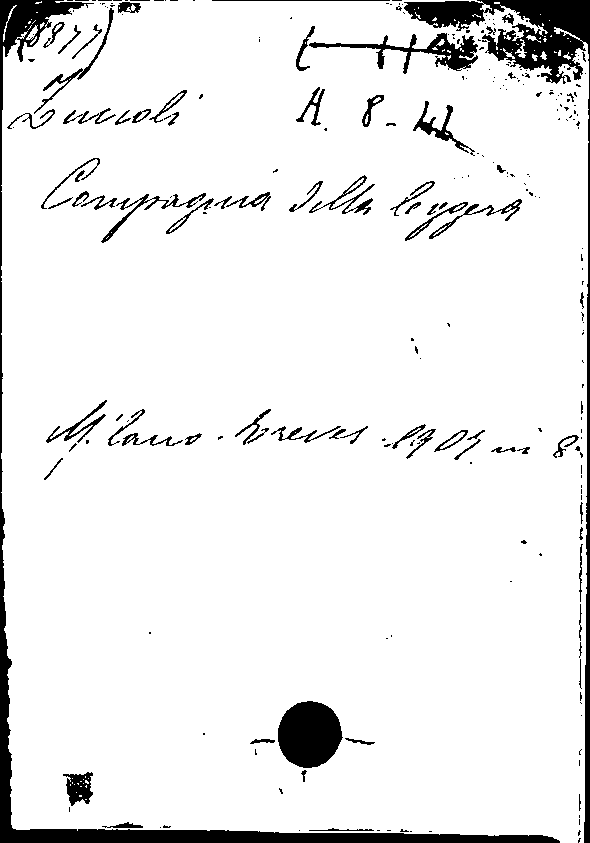 (8877)
Zuccoli
A. 8 - 41
Compagnia della leggera
Milano. Treves. 1907. in 8°